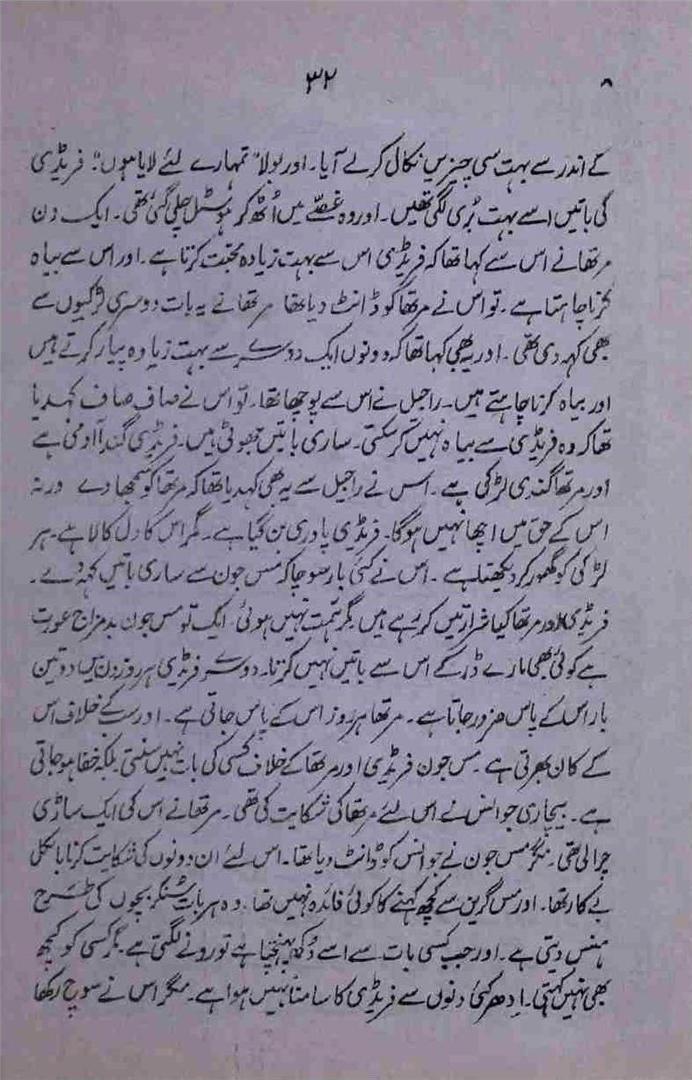 ۳۲
کے اندر سے بہت سی چیزیں نکال کر لے آیا۔ اور بولا" تمہارے لئے لایا ہوں"۔ فریڈی
کی باتیں اسے بہت بُری لگی تھیں۔ اور وہ غصّے میں اُٹھ کر ہوسٹل چلی گئی تھی۔ ایک دن
مرتھا نے اس سے کہا تھا کہ فریڈی اس سے بہت زیادہ محبّت کرتا ہے۔ اور اس سے بیاہ
کرنا چاہتا ہے۔ تو اس نے مرتھا کو ڈانٹ دیا تھا مرتھا نے یہ بات دوسری لڑکیوں سے
بھی کہہ دی تھی۔ اور یہ بھی کہا تھا کہ دونوں ایک دوسرے سے بہت زیادہ پیار کرتے ہیں
اور بیاہ کرنا چاہتے ہیں۔ راجیل نے اس سے پوچھا تھا۔ تو اس نے صاف صاف کہدیا
تھا کہ وہ فریڈی سے بیاہ نہیں کر سکتی۔ ساری باتیں جھوٹی ہیں۔ فریڈی گندا آدمی ہے
اور مرتھا گندی لڑکی ہے۔ اس نے راجیل سے یہ بھی کہدیا تھا کہ مرتھا کو سمجھا دے ورنہ
اس کے حق میں اچھا نہیں ہوگا۔ فریڈی پادری بن گیا ہے۔ مگر اس کا دل کالا ہے۔ ہر
لڑکی کو گھور کر دیکھتا ہے۔ اس نے کئی بار سوچا کہ مس جون سے ساری باتیں کہہ دے۔
فریڈی اور مرتھا کیا شرارتیں کر رہے ہیں مگر ہمّت نہیں ہوئی۔ ایک تو مس جون بدمزاج عورت
ہے کوئی بھی مارے ڈر کے اس سے باتیں نہیں کرتا۔ دوسرے فریڈی ہر روز دن میں دو تین
بار اس کے پاس ضرور جاتا ہے۔ مرتھا ہر روز اس کے پاس جاتی ہے۔ اور سب کے خلاف اس
کے کان بھرتی ہے۔ مس جون فریڈی اور مرتھا کے خلاف کسی کی بات نہیں سنتی بلکہ خفا ہو جاتی
ہے۔ بیچاری جوائس نے اس لئے مرتھا کی شکایت کی تھی۔ مرتھا نے اس کی ایک ساڑی
چرالی تھی۔ مگر مس جون نے جوائس کو ڈانٹ دیا تھا۔ اس لئے ان دونوں کی شکایت کرنا بالکل
بے کار تھا۔ اور مس گرین سے کچھ کہنے کا کوئی فائدہ نہیں تھا۔ وہ ہر بات سنکر بچوں کی طرح
ہنس دیتی ہے۔ اور جب کسی بات سے اسے دُکھ پہنچتا ہے تو رونے لگتی ہے۔ مگر کسی کو کچھ
بھی نہیں کہتی۔ اِدھر کئی دنوں سے فریڈی کا سامنا نہیں ہوا ہے۔ مگر اس نے سوچ رکھا